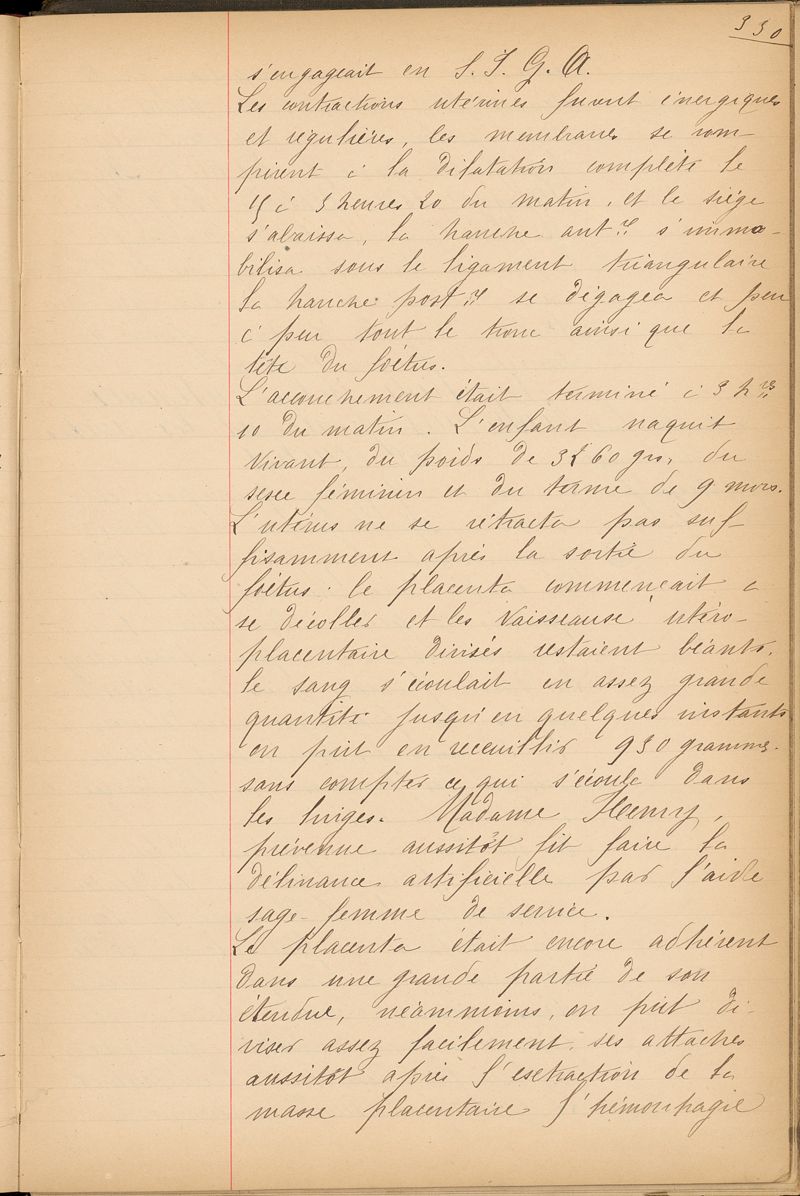 330
s'engageait en S. I. G. A.
Les contractions utérines furent énergiques
et régulières, les membranes se rom-
pirent à la dilatation complète le
15 à 3 heures 20 du matin, et le siège
s'abaissa, la hanche ant.re s'immo-
bilisa sous le ligament triangulaire
la hanche post.re se dégagea et peu
à peu tout le tronc ainsi que la
tête du foêtus.
L'accouchement était terminé à 3 h.res
10 du matin. L'enfant naquit
vivant, du poids de 3k 60 grs, du
sexe féminin et du terme de 9 mois.
L'utérus ne se rétracta pas suf-
fisamment après la sortie du
foêtus. le placenta commençait à
se décoller et les vaisseaux utéro-
placentaire divisés restaient béants.
le sang s'écoulait en assez grande
quantité jusqu'en quelques instants
on put en recueillir 930 grammes.
sans compter ce qui s'écoula dans
les linges. Madame Henry,
prévenue aussitôt fit faire la
délivrance artificielle par l'aide
sage-femme de service.
Le placenta était encore adhérent
dans une grande partie de son
étendue, néammoins, on put di-
viser assez facilement ses attaches
aussitôt après l'extraction de la
masse placentaire l'hémorrhagie